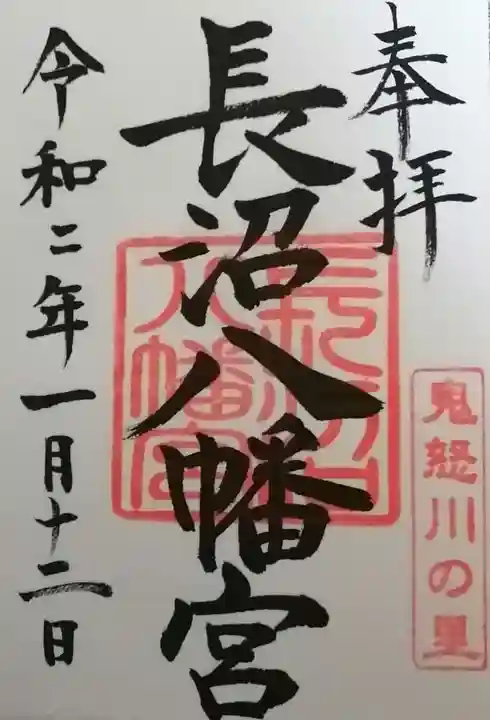 奉拝
鬼怒川の里
長沼八幡宮
長沼八幡宮
令和二年一月十二日